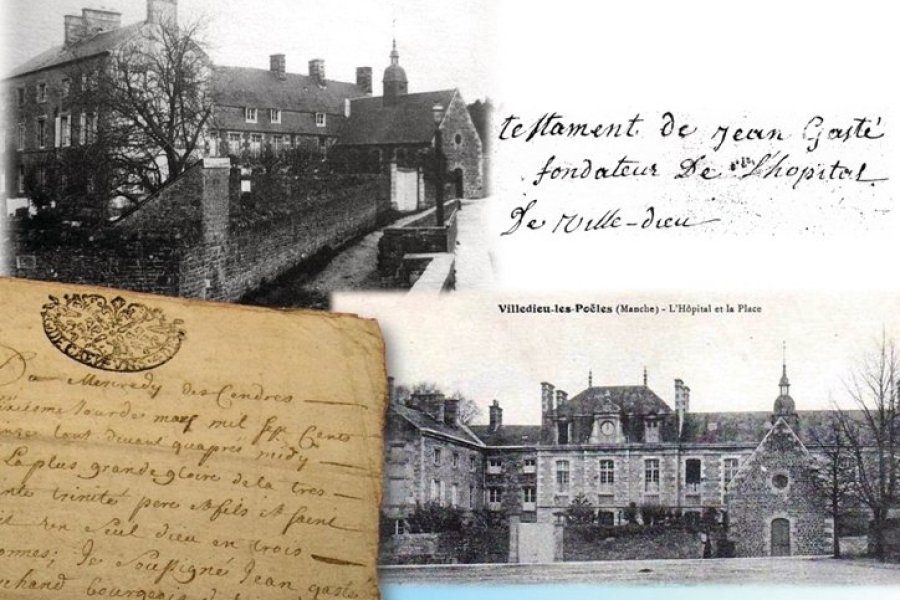 testament de Jean Gasté
fondateur De L'hopital
De Ville-dieu
Villedieu-les-Poëles (Manche) - L'Hôpital et la Place
Du Mercredy des Cendres
jourdes mars mil sept Cents
tant divant quaprés midy
La plus grande gloire de la tres
trinité pere et fils et saint
un seul dieu en trois
Je soussigné Jean gasté
bourgeois